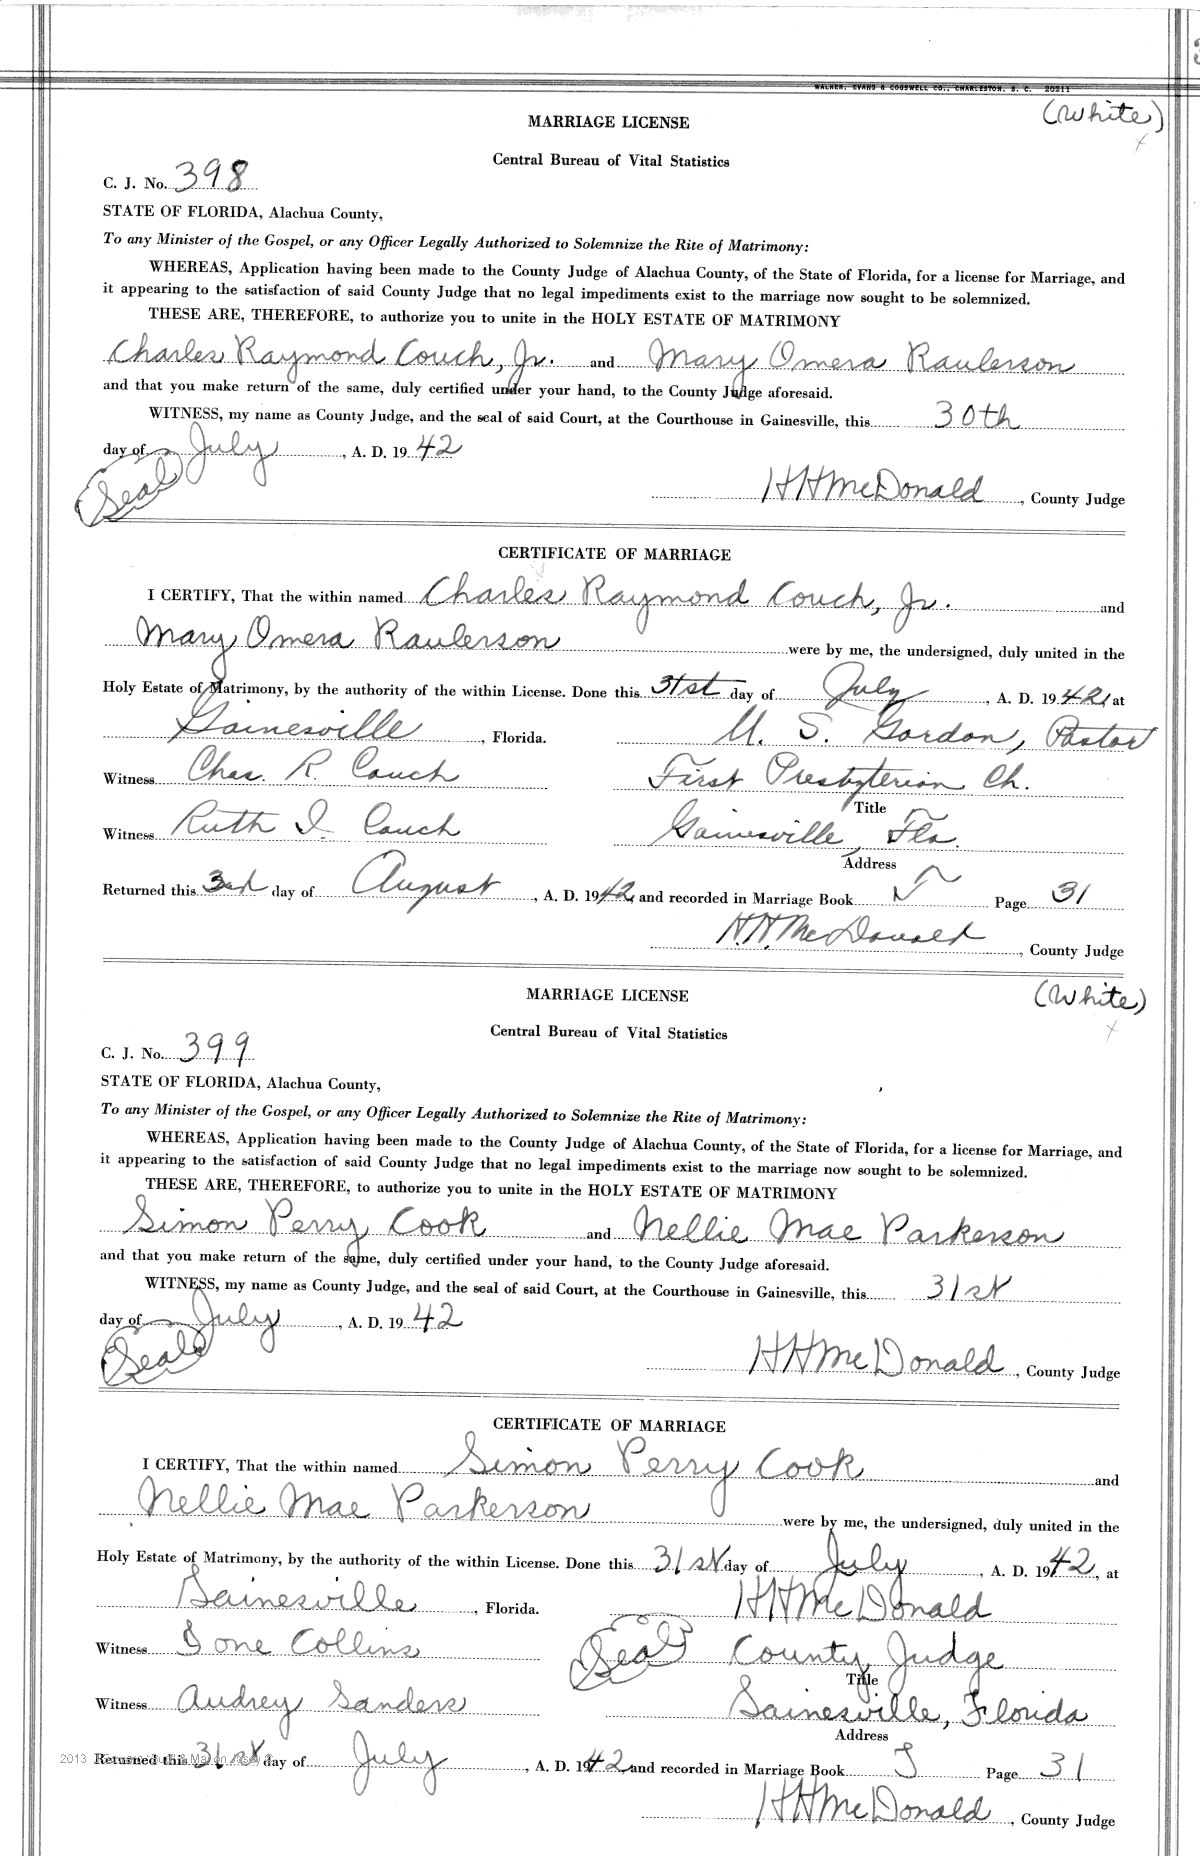 WALKER, EVANS & COGSWELL CO., CHARLESTON, S. C. 20211
(White)
MARRIAGE LICENSE
Central Bureau of Vital Statistics
C. J. No. 398
STATE OF FLORIDA, Alachua County,
To any Minister of the Gospel, or any Officer Legally Authorized to Solemnize the Rite of Matrimony:
WHEREAS, Application having been made to the County Judge of Alachua County, of the State of Florida, for a license for Marriage, and
it appearing to the satisfaction of said County Judge that no legal impediments exist to the marriage now sought to be solemnized.
THESE ARE, THEREFORE, to authorize you to unite in the HOLY ESTATE OF MATRIMONY
Charles Raymond Couch, Jr. and Mary Omera Raulerson
and that you make return of the same, duly certified under your hand, to the County Judge aforesaid.
WITNESS, my name as County Judge, and the seal of said Court, at the Courthouse in Gainesville, this 30th
day of July, A. D. 1942
(Seal) HHMcDonald, County Judge
CERTIFICATE OF MARRIAGE
I CERTIFY, That the within named Charles Raymond Couch, Jr. and
Mary Omera Raulerson were by me, the undersigned, duly united in the
Holy Estate of Matrimony, by the authority of the within License. Done this 31st day of July, A. D. 1942, at
Gainesville, Florida. U. S. Gordon, Pastor
Witness Chas. R. Couch First Presbyterian Ch.
Title
Witness Ruth I. Couch Gainesville, Fla.
Address
Returned this 3rd day of August, A. D. 1942, and recorded in Marriage Book Page 31
H.H.McDonald, County Judge
(White)
MARRIAGE LICENSE
Central Bureau of Vital Statistics
C. J. No. 399
STATE OF FLORIDA, Alachua County,
To any Minister of the Gospel, or any Officer Legally Authorized to Solemnize the Rite of Matrimony:
WHEREAS, Application having been made to the County Judge of Alachua County, of the State of Florida, for a license for Marriage, and
it appearing to the satisfaction of said County Judge that no legal impediments exist to the marriage now sought to be solemnized.
THESE ARE, THEREFORE, to authorize you to unite in the HOLY ESTATE OF MATRIMONY
Simon Perry Cook and Nellie Mae Parkerson
and that you make return of the same, duly certified under your hand, to the County Judge aforesaid.
WITNESS, my name as County Judge, and the seal of said Court, at the Courthouse in Gainesville, this 31st
day of July, A. D. 1942
(Seal) HHMcDonald, County Judge
CERTIFICATE OF MARRIAGE
I CERTIFY, That the within named Simon Perry Cook and
Nellie Mae Parkerson were by me, the undersigned, duly united in the
Holy Estate of Matrimony, by the authority of the within License. Done this 31st day of July, A. D. 1942, at
Gainesville, Florida. HHMcDonald
Witness Ione Collins (Seal) County Judge
Title
Witness Audrey Sanders Gainesville, Florida
Address
2013
Returned this 31st day of July, A. D. 1942, and recorded in Marriage Book Page 31
HHMcDonald, County Judge